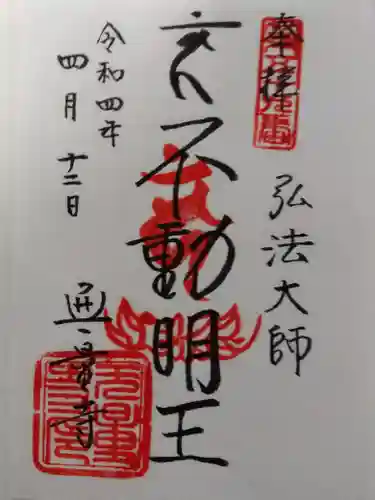 奉拝
弘法大師
不動明王
令和四年
四月十二日
無量寺